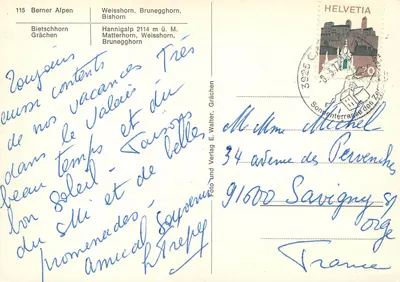 115 Berner Alpen
Weisshorn, Brunegghorn,
Bishorn
Bietschhorn
Grächen
Hannigalp 2114 m ü. M.
Matterhorn, Weisshorn,
Brunegghorn
Toujours
aussi contents
de nos vacances Très
dans le Valais -
beau temps et du
bon soleil - Faisons
du ski et de belles
promenades -
amical souvenir
Foto und Verlag E. Walter, Grächen
HELVETIA
3925
Sonnenterrasse des
M. Mme Michel
34 avenue des Pervenches
91600 Savigny s/
Orge
France